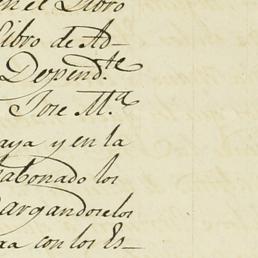 en el Libro
Libro de Ad-
Depend.te
Jose M.a
aya y en la
abonado los
argandose los
xa con los Es-